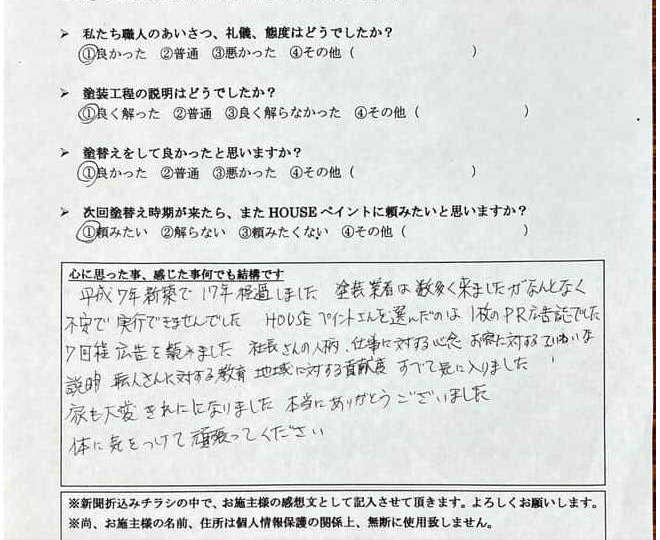 ➢ 私たち職人のあいさつ、礼儀、態度はどうでしたか？
①良かった ②普通 ③悪かった ④その他（ ）
➢ 塗装工程の説明はどうでしたか？
①良く解った ②普通 ③良く解らなかった ④その他（ ）
➢ 塗替えをして良かったと思いますか？
①良かった ②普通 ③悪かった ④その他（ ）
➢ 次回塗替え時期が来たら、またHOUSEペイントに頼みたいと思いますか？
①頼みたい ②解らない ③頼みたくない ④その他（ ）
心に思った事、感じた事何でも結構です
平成7年新築で 17年経過しました 塗装業者は数多く来ましたがなんとなく
不安で実行できませんでした HOUSEペイントさんを選んだのは 1枚のPR広告誌でした
7回程広告を頼みました 社長さんの人柄、仕事に対する心念 お客に対するていねいな
説明 職人さんに対する教育 地域に対する貢献度 すべて気に入りました
家も大変きれいになりました 本当にありがとうございました
体に気をつけて頑張ってください
※新聞折込みチラシの中で、お施主様の感想文として記入させて頂きます。よろしくお願いします。
※尚、お施主様の名前、住所は個人情報保護の関係上、無断に使用致しません。